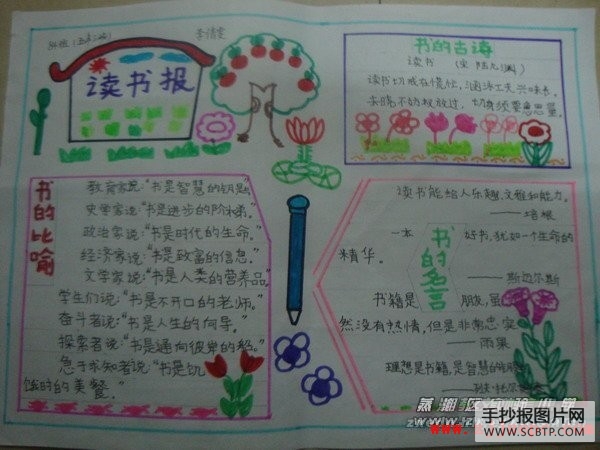 读书报
书的古诗
读书
读书切戒在慌忙，涵泳工夫兴味长。
未晓不妨权放过，切身须要急思量。
书的比喻
教育家说："书是智慧的钥匙。"
史学家说："书是进步的阶梯。"
政治家说："书是时代的生命。"
经济家说："书是致富的信息。"
文学家说："书是人类的营养品。"
学生们说："书是不开口的老师。"
奋斗者说："书是人生的向导。"
探索者说："书是通向彼岸的船。"
急于求知者说："书是饥
饿时的美餐。"
书的名言
读书能给人乐趣、文雅和能力。
——培根
一本 好书，犹如一个生命的
精华。
——斯迈尔斯
书籍是 朋友，虽
然没有热情，但是非常忠实
——雨果
理想是书籍，是智慧的钥匙
手抄报图片网
WWW.SCBTP.COM